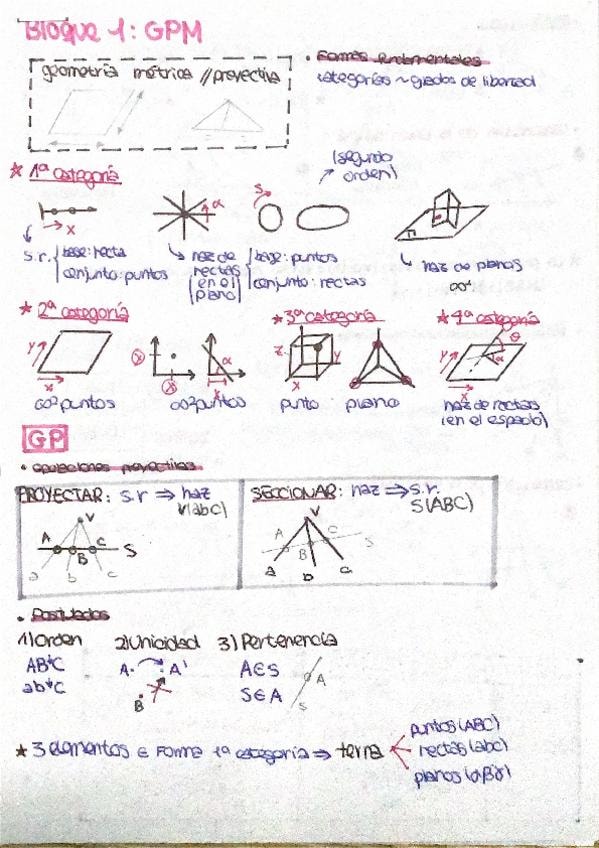 Bloque 1: GPM
geometría métrica // proyectiva
• Formas fundamentales
categorías ~ grados de libertad
★ 1ª categoría
(segundo
orden)
x
α
s
π
s.r. { base: recta
conjunto: puntos
haz de
rectas
(en el
plano)
{ base: puntos
conjunto: rectas
haz de planos
∞¹
★ 2ª categoría
★ 3ª categoría
★ 4ª categoría
y
x
α
z
y
x
y
x
θ
∞² puntos
∞² puntos
punto
plano
haz de rectas
(en el espacio)
GP
• operaciones proyectivas
PROYECTAR: s.r ⇒ haz
V(abc)
V
A
B
C
S
a
b
c
SECCIONAR: haz ⇒ s.r.
S(ABC)
V
A
B
C
S
a
b
a
• Postulados
1) Orden
2) Unicidad
3) Pertenencia
A·
A'
B
A∈S
S∈A
A
S
★ 3 elementos ∈ Forma 1ª categoría ⇒ terna
puntos (ABC)
rectas (abc)
planos (αβγ)